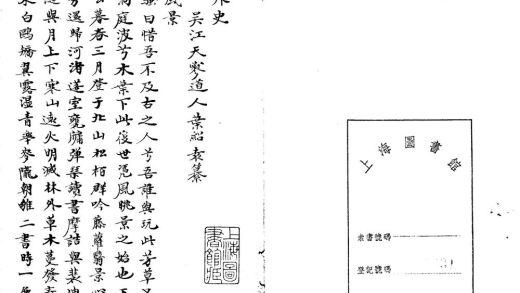 外史
景
吳江天寥道人葉紹袁纂
曰惜吾不及古之人兮吾誰與玩此芳草又
洞庭波兮木葉下此後世憑風眺景之始也
暮春三月登于北山松栢群吟藤蘿翳景
遇歸河渚蓬室甕牖彈琴讀書摩詰與裴迪
與月上下寒山遠火明滅林外草木蔓發
白鷗矯翼露濕青皋麥隴朝雊二書時一
上海圖書館藏
上海圖書館
索書號碼
登記號碼